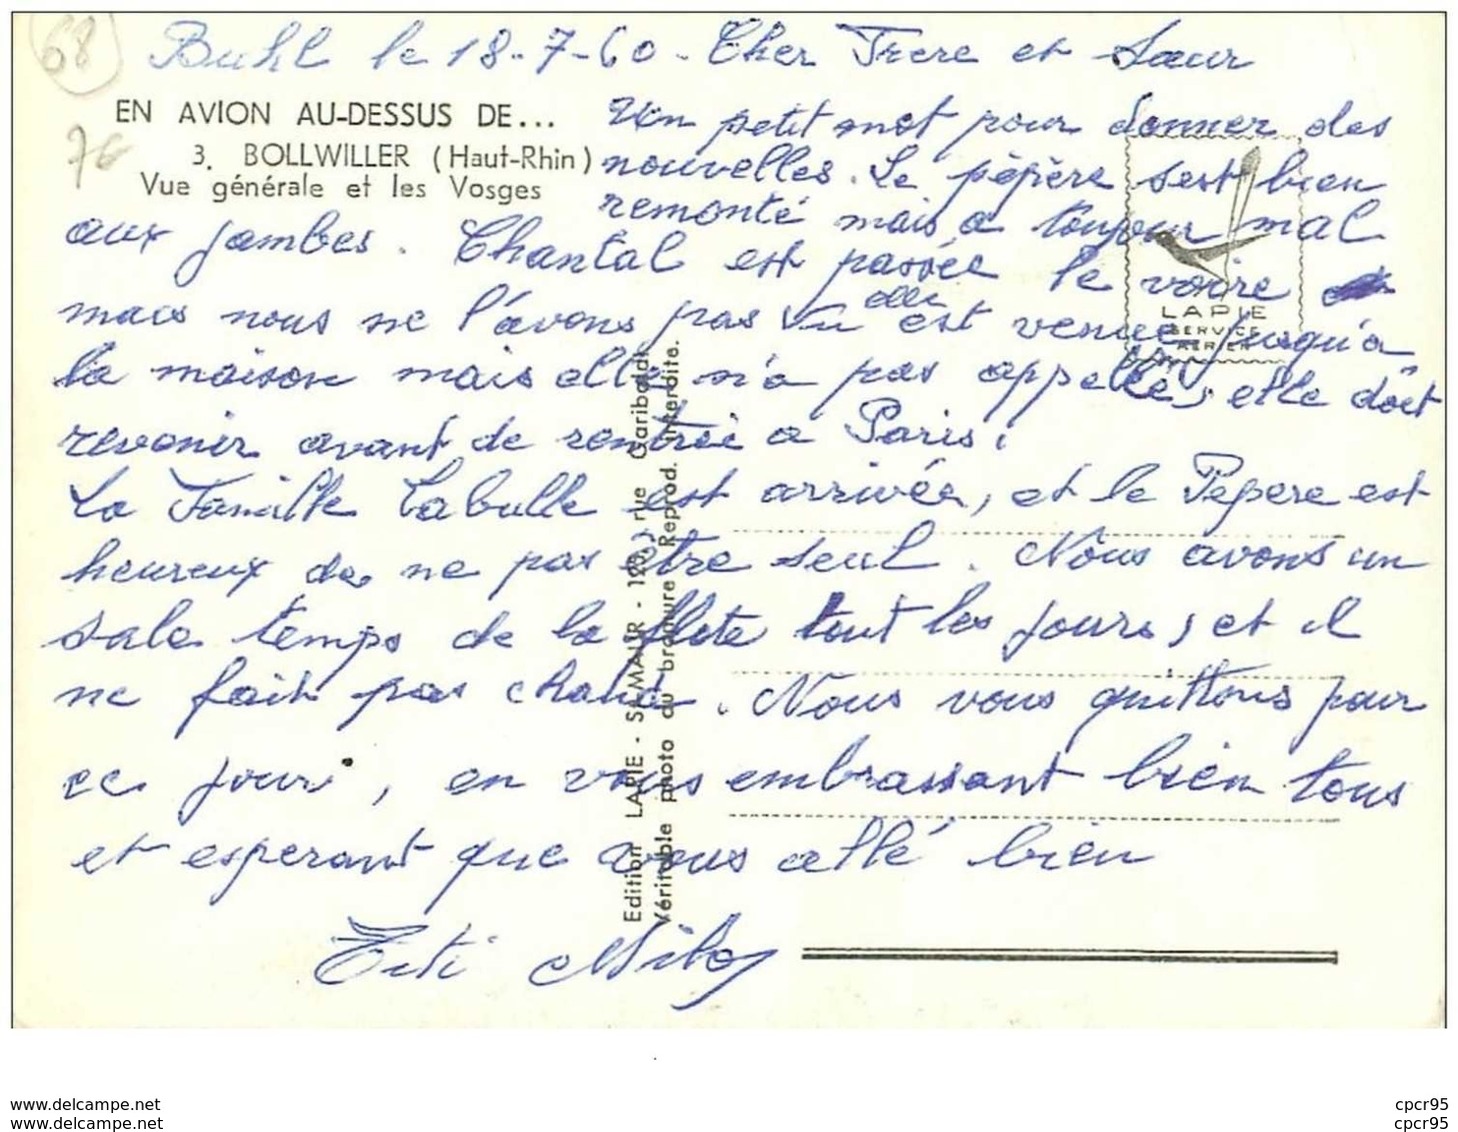 68
Buhl le 18-7-60- Cher Frere et Sœur
EN AVION AU-DESSUS DE...
76
3. BOLLWILLER (Haut-Rhin)
Vue générale et les Vosges
Un petit mot pour donner des
nouvelles. Le pépère sest bien
remonté mais a toujour mal
aux jambes. Chantal est passée le voire
mais nous ne l'avons pas vu elle est venue jusqu'a
la maison mais elle n'a pas appellé, elle doit
revenir avant de rentrée a Paris.
La Famille Labulle est arrivée, et le Pepere est
heureux de ne pas etre seul. Nous avons un
sale temps de la flote tout les jours, et il
ne fait pas chaud. Nous vous quittons pour
ce jour, en vous embrassant bien tous
et esperant que vous allé bien
Titi
LAPIE
SERVICE
AERIEN
Edition LAPIE - St-MAUR - 120, rue Garibaldi
Véritable photo au bromure Reprod. interdite.
www.delcampe.net
www.delcampe.net
cpcr95
cpcr95